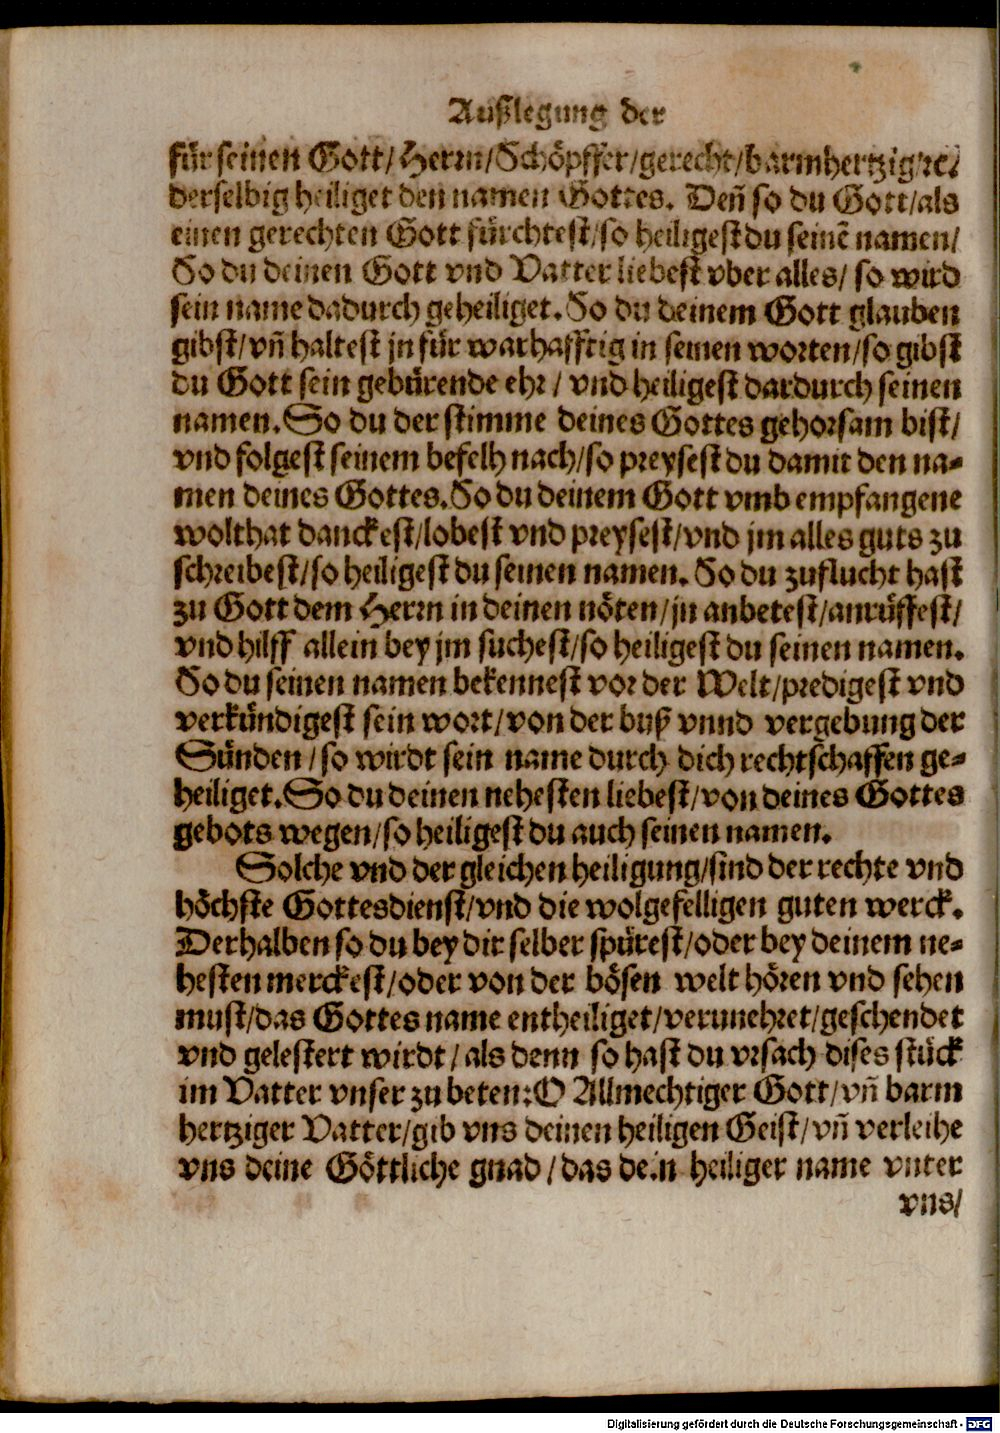 Außlegung der
für seinen Gott/ Herrn/Schöpffer/gerecht/barmhertzig/ꝛc/
derselbig heiliget den namen Gottes. Deñ so du Gott/als
einen gerechten Gott fürchtest/so heiligest du seinē namen/
So du deinen Gott vnd Vatter liebest vber alles/ so wird
sein name dadurch geheiliget. So du deinem Gott glauben
gibst/vñ haltest jn für warhafftig in seinen worten/so gibst
du Gott sein gebürende ehr/ vnd heiligest dardurch seinen
namen. So du der stimme deines Gottes gehorsam bist/
vnd folgest seinem befelh nach/so preysest du damit den na-
men deines Gottes. So du deinem Gott vmb empfangene
wolthat danckest/lobest vnd preysest/vnd jm alles guts zu
schreibest/so heiligest du seinen namen. So du zuflucht hast
zu Gott dem Herrn in deinen nöten/jn anbetest/anrüffest/
vnd hilff allein bey jm suchest/so heiligest du seinen namen.
So du seinen namen bekennest vor der Welt/predigest vnd
verkündigest sein wort/von der buß vnnd vergebung der
Sünden/so wirdt sein name durch dich rechtschaffen ge-
heiliget. So du deinen nehesten liebest/von deines Gottes
gebots wegen/so heiligest du auch seinen namen.
Solche vnd der gleichen heiligung/sind der rechte vnd
höchste Gottesdienst/vnd die wolgefelligen guten werck.
Derhalben so du bey dir selber spürest/oder bey deinem ne-
hesten merckest/oder von der bösen welt hören vnd sehen
must/das Gottes name entheiliget/verunehret/geschendet
vnd gelestert wirdt/als denn so hast du vrsach dises stück
im Vatter vnser zu beten: O Allmechtiger Gott/vñ barm
hertziger Vatter/gib vns deinen heiligen Geist/vñ verleihe
vns deine Göttliche gnad/das dein heiliger name vnter
vns/
Digitalisierung gefördert durch die Deutsche Forschungsgemeinschaft - DFG